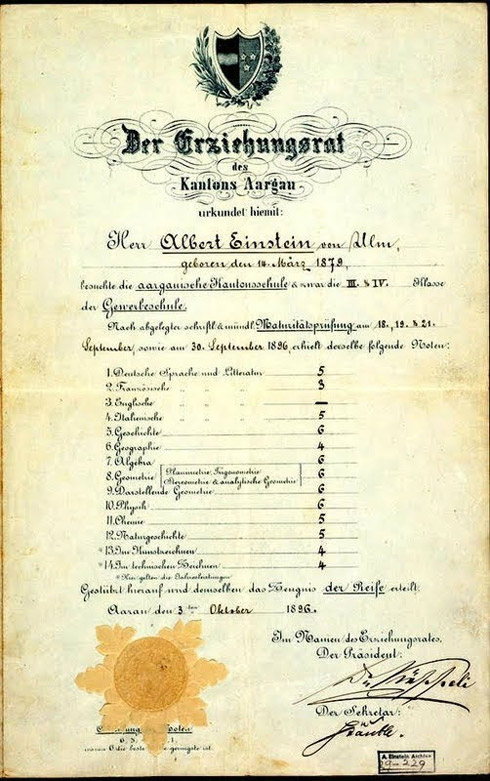 Der Erziehungsrat
des
Kantons Aargau
urkundet hiemit:
Herr Albert Einstein von Ulm,
geboren den 14. März 1879,
besuchte die aargauische Kantonsschule & zwar die III. & IV. Klasse
der Gewerbeschule.
Nach abgelegter schriftl. & mündl. Maturitätsprüfung am 18., 19. & 21.
September, sowie am 30. September 1896, erhielt derselbe folgende Noten:
1. Deutsche Sprache und Litteratur 5
2. Französische " " " 3
3. Englische " " " —
4. Italienische " " " 5
5. Geschichte 6
6. Geographie 4
7. Algebra 6
8. Geometrie Planimetrie, Trigonometrie 6
Stereometrie & analytische Geometrie
9. Darstellende Geometrie 6
10. Physik 6
11. Chemie 5
12. Naturgeschichte 5
* 13. Im Kunstzeichnen 4
* 14. Im technischen Zeichnen 4
* Hier gelten die Jahresleistungen
Gestützt hierauf wird demselben das Zeugnis der Reife erteilt.
Aarau den 3ten Oktober 1896.
Im Namen des Erziehungsrates,
Der Präsident:
Der Sekretär:
Stäuble.
6, 5 1,
6 die beste geringste ist.
A. Einstein Archive
29-229